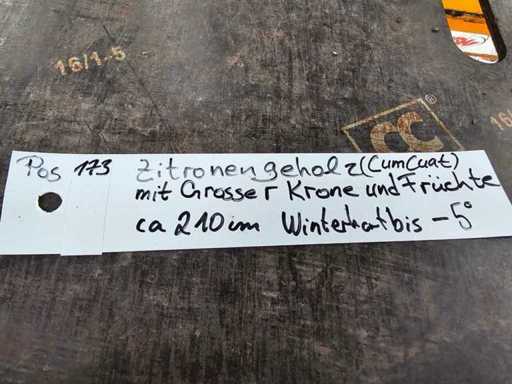 16/1-5
CC
16/1
Pos 173 Zitronengeholz (CumCuat)
mit Grosser Krone und Früchte
ca 210 cm Winterhat bis -5°